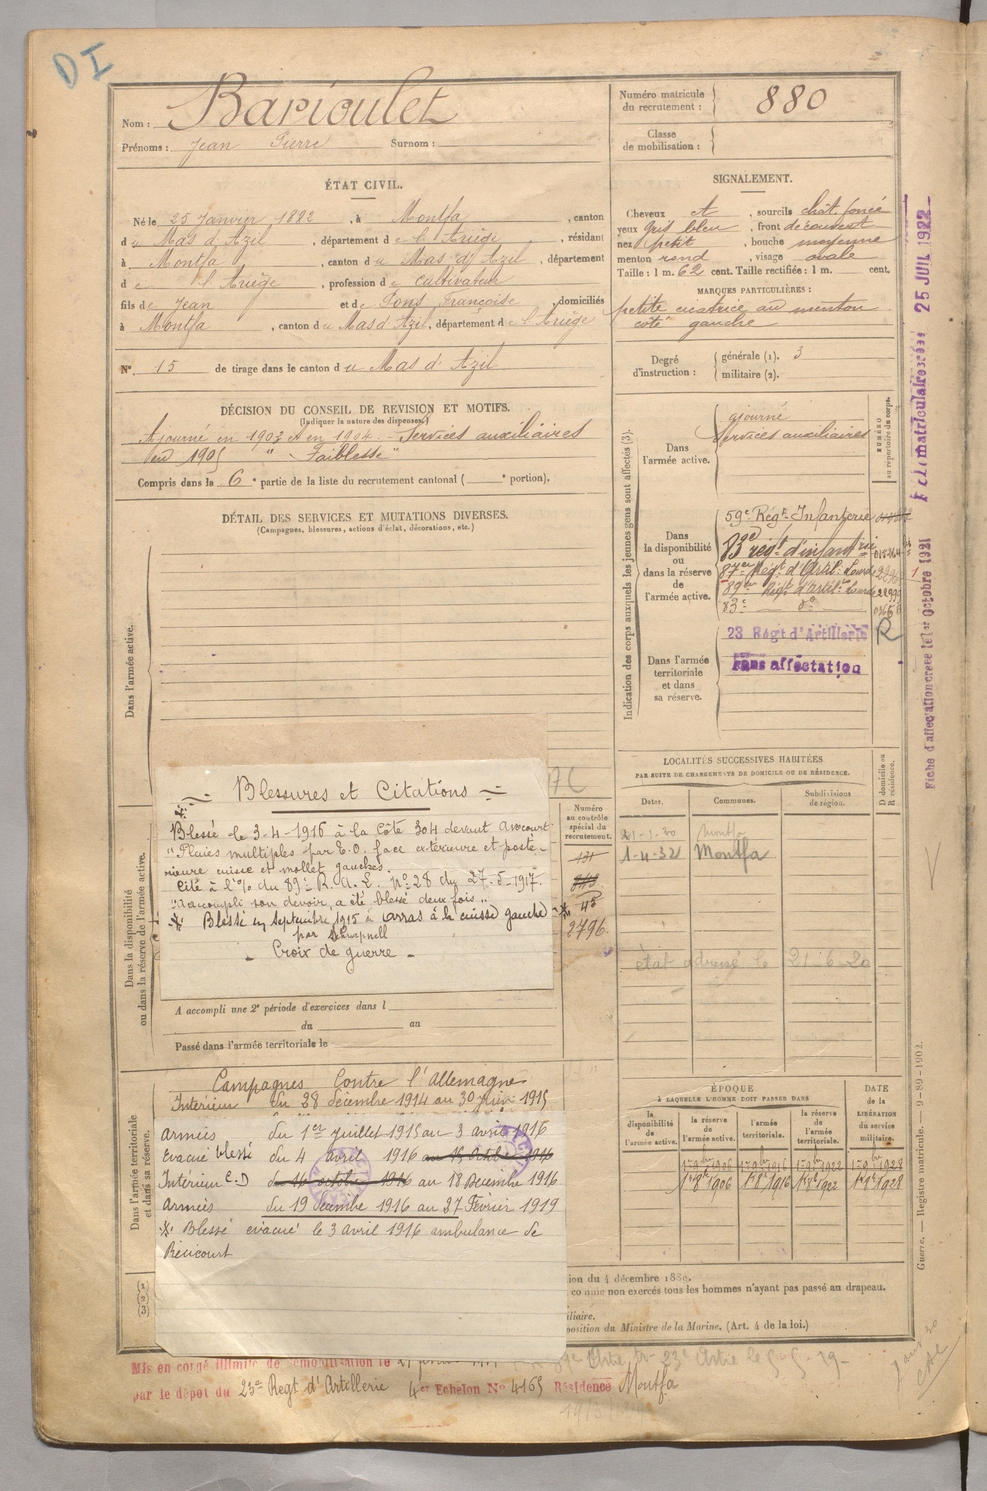 DI
Nom : Barioulet
Prénoms : Jean Pierre Surnom :
Numéro matricule du recrutement : 880
Classe de mobilisation :
ÉTAT CIVIL.
Né le 25 Janvier 1882, à Montfa, canton
du Mas d'Azil, département de l'Ariège, résidant
à Montfa, canton du Mas d'Azil, département
de l'Ariège, profession de cultivateur
fils de Jean et de Pons Françoise, domiciliés
à Montfa, canton du Mas d'Azil, département de l'Ariège
N° 15 de tirage dans le canton du Mas d'Azil
SIGNALEMENT.
Cheveux et, sourcils chât. foncé
yeux gris bleu, front découvert
nez petit, bouche moyenne
menton rond, visage ovale
Taille : 1 m. 62 cent. Taille rectifiée : 1 m. cent.
MARQUES PARTICULIÈRES :
petite cicatrice au menton
côté gauche
Degré d'instruction : générale (1). 3
militaire (2).
DÉCISION DU CONSEIL DE REVISION ET MOTIFS.
(Indiquer la nature des dispenses.)
Ajourné en 1903 et en 1904 - Services auxiliaires
en 1905 " Faiblesse "
Compris dans la 6e partie de la liste du recrutement cantonal ( e portion).
DÉTAIL DES SERVICES ET MUTATIONS DIVERSES.
(Campagnes, blessures, actions d'éclat, décorations, etc.)
Dans l'armée active.
Indication des corps auxquels les jeunes gens sont affectés (3).
NUMÉRO au répertoire du corps.
Dans l'armée active.
ajourné
Services auxiliaires
Dans la disponibilité ou dans la réserve de l'armée active.
59e Régt Infanterie
83e régt d'infanterie
87e Régt d'Artil. Lourde
89e Régt d'artil. Lourde
83e do
R
Dans l'armée territoriale et dans sa réserve.
23 Régt d'Artillerie
Sans affectation
Fiche d'affectation créée le 1er Octobre 1921
Fche matriculaire créée 25 JUIL 1922
LOCALITÉS SUCCESSIVES HABITÉES
PAR SUITE DE CHANGEMENTS DE DOMICILE OU DE RÉSIDENCE.
Dates. Communes. Subdivisions de région. D domicile ou R résidence.
21-1-20 Montfa
1-4-32 Montfa
état adressé le 21-6-20
Numéro au contrôle spécial du recrutement.
131
45
2796
Dans la disponibilité ou dans la réserve de l'armée active.
Blessures et Citations
Blessé le 3-4-1916 à la Côte 304 devant Avocourt
"Plaies multiples par E.O. face extérieure et posté-
rieure cuisse et mollet gauches.
Cité à l'o/ du 89e R.A.L. no 28 du 27-5-1917.
"A accompli son devoir, a été blessé deux fois"
Blessé en Septembre 1915 à Arras à la cuisse gauche
par Schrapnell
- Croix de guerre -
A accompli une 2e période d'exercices dans l
du au
Passé dans l'armée territoriale le
Dans l'armée territoriale et dans sa réserve.
Campagnes Contre l'Allemagne
Intérieur du 28 décembre 1914 au 30 juin 1915
Armées du 1er Juillet 1915 au 3 avril 1916
Evacué blessé du 4 avril 1916 au 15 octobre 1916
Intérieur C.D du 16 octobre 1916 au 18 Décembre 1916
Armées du 19 Décembre 1916 au 27 Février 1919
Blessé évacué le 3 avril 1916 ambulance de
Récicourt
ÉPOQUE
À LAQUELLE L'HOMME DOIT PASSER DANS
la disponibilité de l'armée active. la réserve de l'armée active. l'armée territoriale. la réserve de l'armée territoriale.
DATE de la LIBÉRATION du service militaire.
1er 9bre 1906 1er 9bre 1916 1er 9bre 1922 1er 9bre 1928
1er 8bre 1906 1er 8bre 1916 1er 8bre 1922 1er 8bre 1928
(1) (2) (3)
ion du 4 décembre 1889.
comme non exercés tous les hommes n'ayant pas passé au drapeau.
iliaire.
position du Ministre de la Marine. (Art. 4 de la loi.)
Mis en congé illimité de démobilisation le
par le dépôt du 23e Regt d'Artillerie 4er Echelon No 4165 Résidence Montfa
Guerre. — Registre matricule. — 9-89-1902.